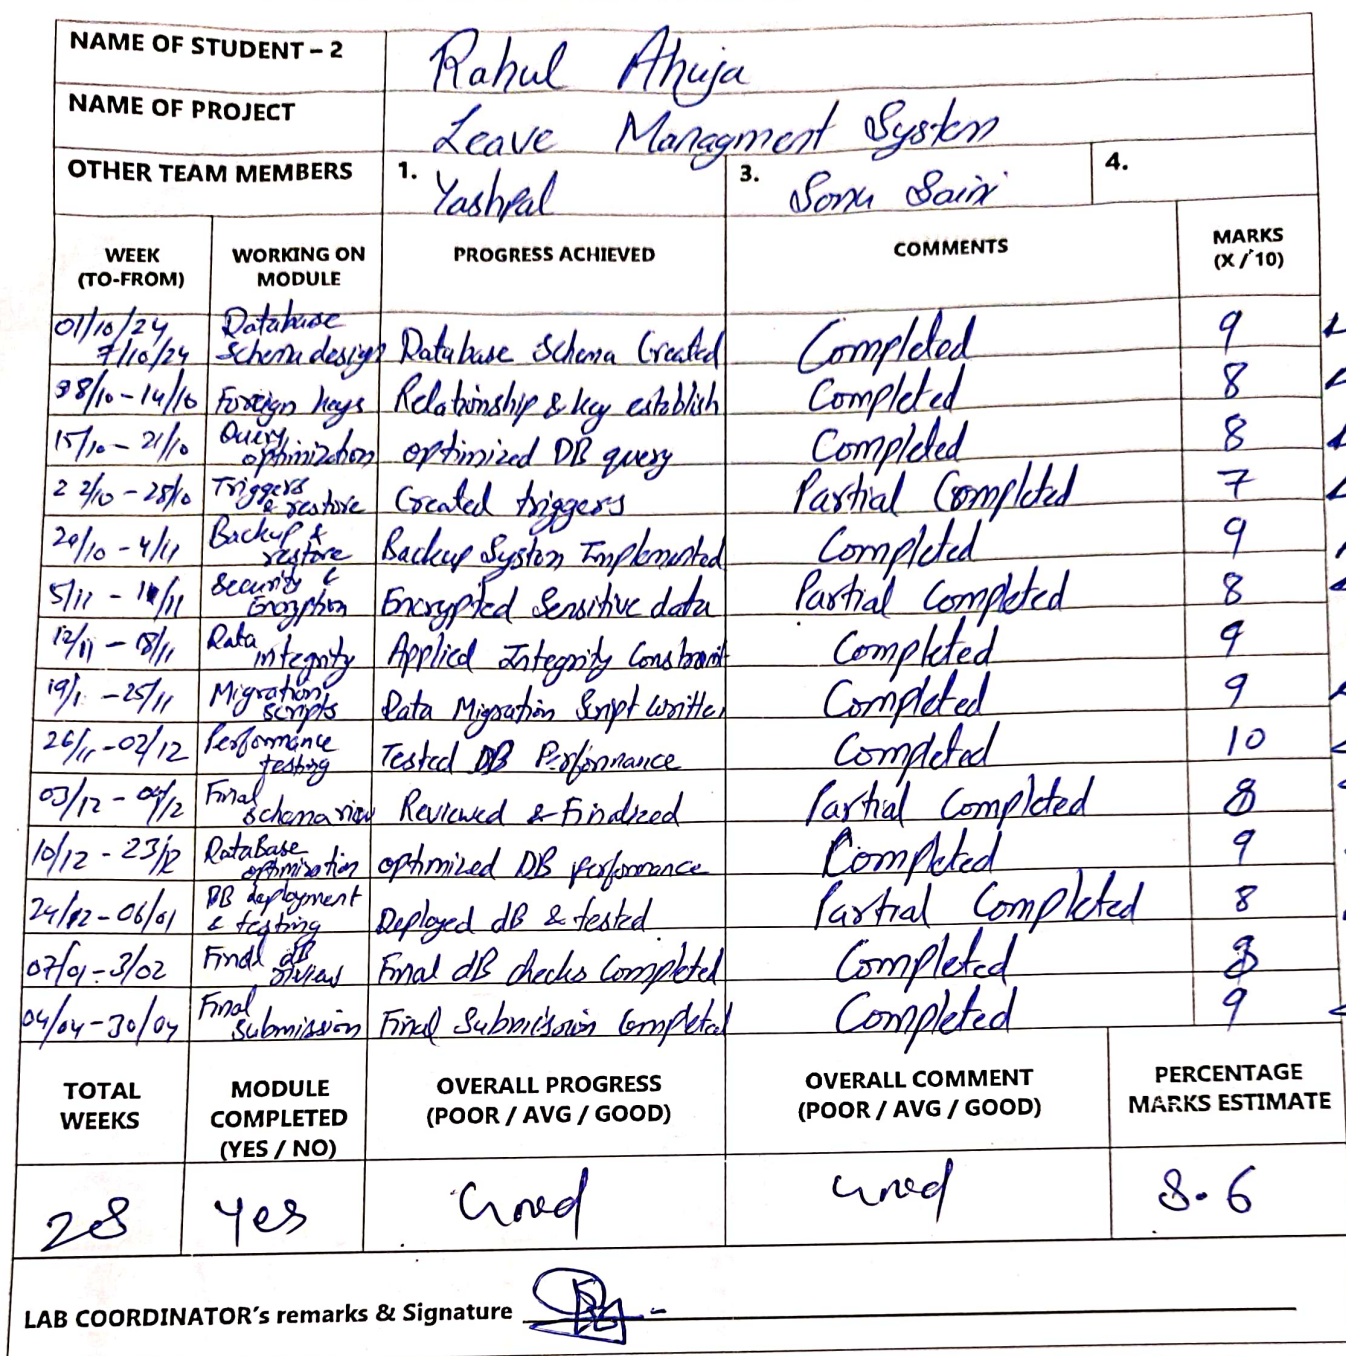 NAME OF STUDENT – 2 Rahul Ahuja
NAME OF PROJECT Leave Managment System
OTHER TEAM MEMBERS 1. Yashpal 3. Sonu Saini 4.
WEEK (TO-FROM) WORKING ON MODULE PROGRESS ACHIEVED COMMENTS MARKS (X / 10)
01/10/24 7/10/24 Database Schema design Database Schema Created Completed 9
08/10 - 14/10 Foreign keys Relationship & key establish Completed 8
15/10 - 21/10 Query optimization optimized DB query Completed 8
22/10 - 28/10 Triggers & restore Created triggers Partial Completed 7
29/10 - 4/11 Backup & restore Backup System Implemented Completed 9
5/11 - 11/11 Security & Encryption Encrypted Sensitive data Partial Completed 8
12/11 - 18/11 Data integrity Applied Integrity Constraint Completed 9
19/1 - 25/11 Migration scripts Data Migration Script written Completed 9
26/11 - 02/12 Performance testing Tested DB Performance Completed 10
03/12 - 09/12 Final schema Reviewed & Finalized Partial Completed 8
10/12 - 23/12 DataBase optimization optimized DB performance Completed 9
24/12 - 06/01 DB deployment & testing Deployed dB & tested Partial Completed 8
07/01 - 3/02 Final dB Final dB checks Completed Completed
04/04 - 30/04 Final submission Final Submission Completed Completed 9
TOTAL WEEKS MODULE COMPLETED (YES / NO) OVERALL PROGRESS (POOR / AVG / GOOD) OVERALL COMMENT (POOR / AVG / GOOD) PERCENTAGE MARKS ESTIMATE
28 Yes Good Good 8.6
LAB COORDINATOR's remarks & Signature